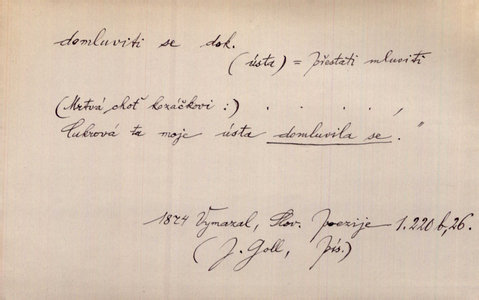 domluviti se dok.
(ústa) = přestati mluviti
(Mrtvá choť kozáčkovi:) . . . . ,
Cukrová ta moje ústa domluvila se."
1874 Vymazal, Slov. poezije 1.220 b, 26.
(J. Goll, Pís.)